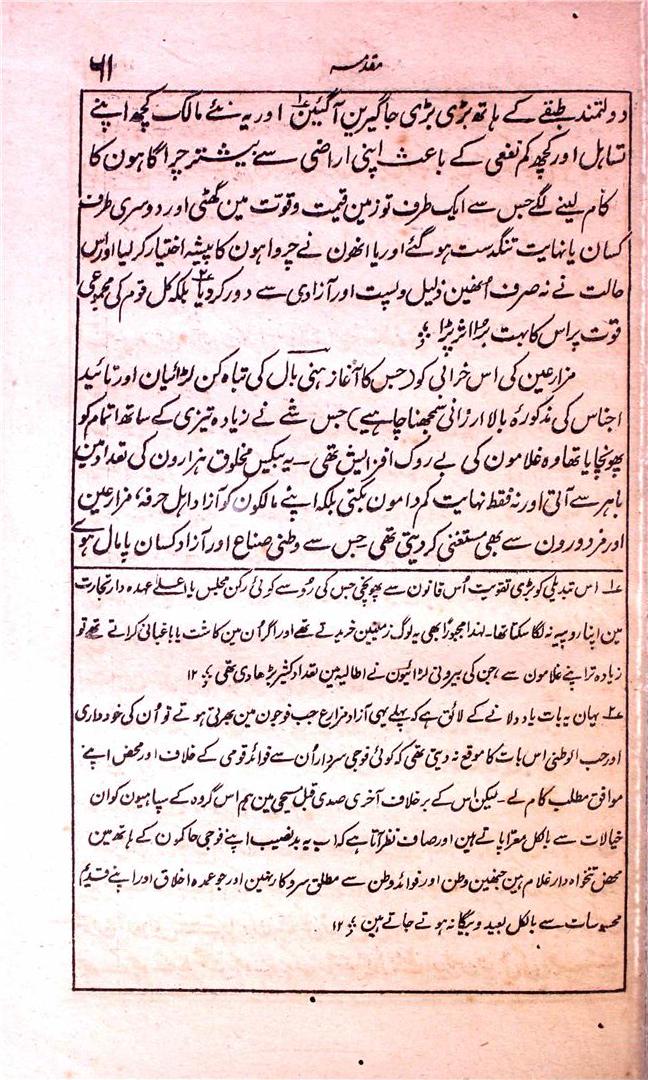 مقدمہ ۶۱
دولتمند طبقے کے ہاتھ بڑی بڑی جاگیرین آگئین؂۱ اور یہ نئے مالک کچھ اپنے
تساہل اور کچھ کم نفعی کے باعث اپنی اراضی سے بیشتر چراگاہون کا
کام لینے لگے جس سے ایک طرف تو زمین قیمت و قوت مین گھٹی اور دوسری طرف
کسان یا نہایت تنگدست ہو گئے اور یا انھون نے چرواہون کا پیشہ اختیار کر لیا اور اس
حالت نے نہ صرف اُنھین ذلیل و پست اور آزادی سے دور کر دیا؂۲ بلکہ کل قوم کی مجموعی
قوت پر اس کا بہت بُرا اثر پڑا ؛
مزارعین کی اس خرابی کو (جس کا آغاز ہنی بال کی تباہ کن لڑائیان اور تائید
اجناس کی مذکورۂ بالا ارزانی سمجھنا چاہیے) جس شے نے زیادہ تیزی کے ساتھ اتمام کو
پھونچایا تھا وہ غلامون کی بے روک افزایش تھی ۔ یہ بیکس مخلوق ہزارون کی تعداد مین
باہر سے آتی اور نہ فقط نہایت کم دامون بکتی بلکہ اپنے مالکون کو آزاد اہل حرفہ، مزارعین
اور مزدورون سے بھی مستغنی کر دیتی تھی جس سے وطنی صناع اور آزاد کسان پامال ہوے
؂۱ اس تبدیلی کو بڑی تقویت اُس قانون سے پھونچی جس کی رُو سے کوئی رکن مجلس یا اعلےٰ عہدہ دار تجارت
مین اپنا روپیہ نہ لگا سکتا تھا۔ لہذا مجبوراً بھی یہ لوگ زمینین خریدتے تھے اور اگر اُن مین کاشت یا باغبانی کراتے تھے تو
زیادہ تر اپنے غلامون سے جن کی بیرونی لڑائیون نے اطالیہ مین تعداد کثیر بڑھا دی تھی ؛ ۱۲
؂۲ یہان یہ بات یاد دلانے کے لائق ہے کہ پہلے یہی آزاد مزارع جب فوجون مین بھرتی ہوتے تو اُن کی خودداری
اور حب الوطنی اس بات کا موقع نہ دیتی تھی کہ کوئی فوجی سردار اُن سے فوائد قومی کے خلاف اور محض اپنے
موافق مطلب کام لے ۔ لیکن اس کے برخلاف آخری صدی قبل مسیحی مین ہم اس گروہ کے سپاہیون کو ان
خیالات سے بالکل معرّا پاتے ہین اور صاف نظر آتا ہے کہ اب یہ بدنصیب اپنے فوجی حاکمون کے ہاتھ مین
محض تنخواہ دار غلام ہین جنھین وطن اور فوائد وطن سے مطلق سروکار نہین اور جو عمدہ اخلاق اور اپنے قدیم
محسوسات سے بالکل بعید و بیگانہ ہوتے جاتے ہین ؛ ۱۲